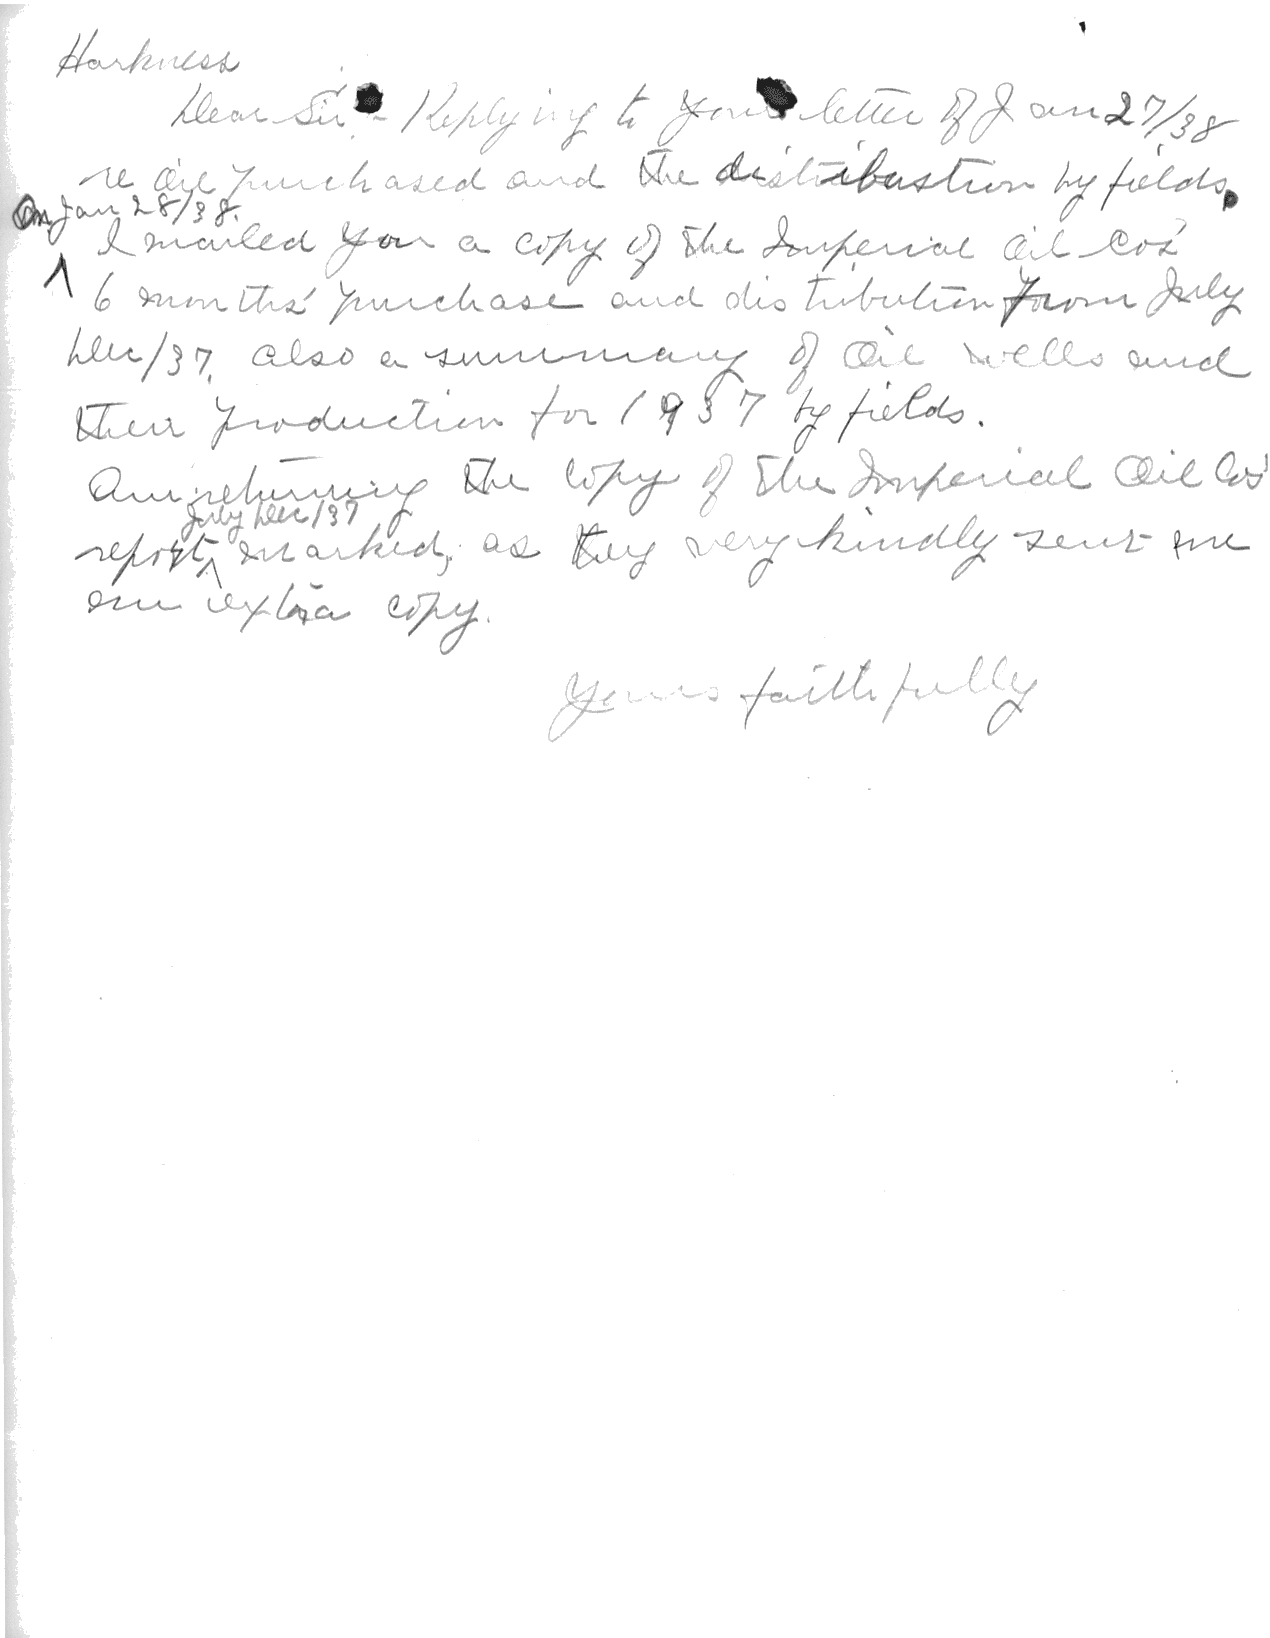 Harkness
Dear Sir:- Replying to your letter of Jan 27/38
re Oil purchased and the distribustion by fields.
On Jan 28/38.
I mailed you a copy of the Imperial Oil Cos'
6 months' purchase and distribution from July
Dec/37, also a summary of Oil wells and
their production for 1937 by fields.
Am returning the copy of the Imperial Oil Cos'
July Dec/37
report, marked, as they very kindly sent me
an extra copy.
Yours faithfully